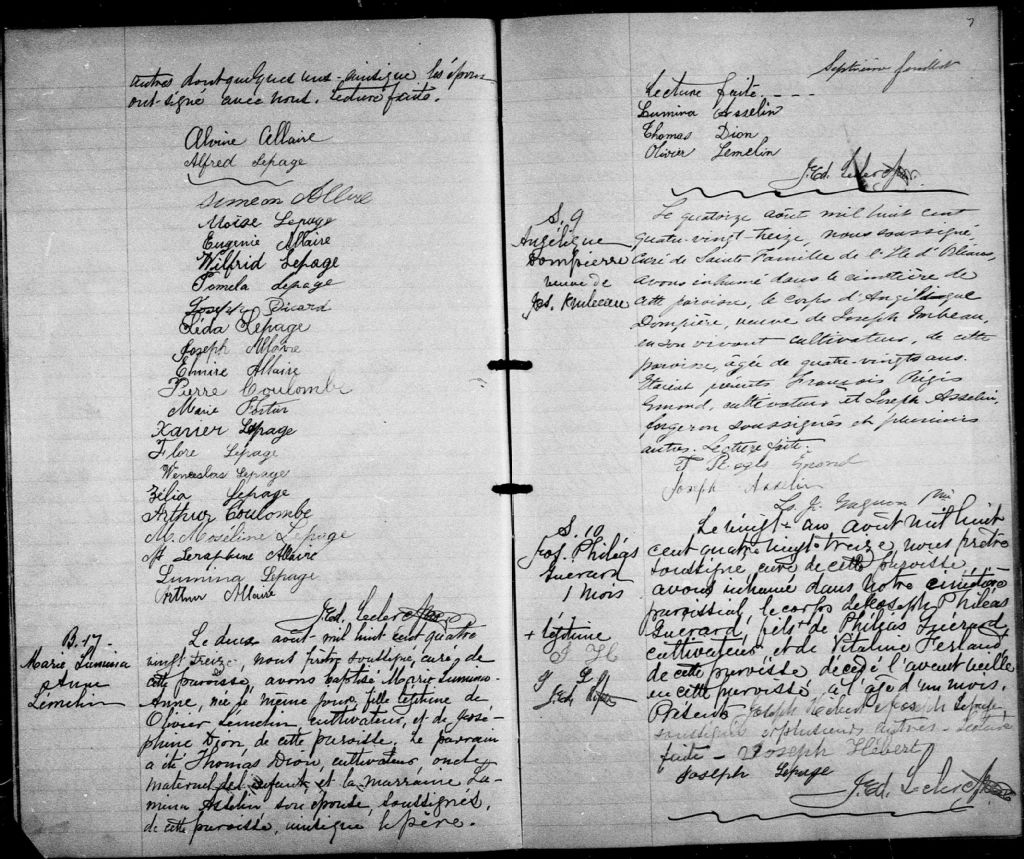 autres dont quelques uns ainsique les époux
ont signé avec nous. Lecture faite.
Alvine Allaire
Alfred Lepage
Simeon Allaire
Moïse Lepage
Eugenie Allaire
Wilfrid Lepage
Pomela Lepage
Joseph Picard
Léda Lepage
Joseph Allaire
Elmire Allaire
Pierre Coulombe
Marie Fortier
Xavier Lepage
Flore Lepage
Wenceslas Lepage
Zélia Lepage
Arthur Coulombe
M. Moseline Lepage
M. Seraphine Allaire
Lumina Lepage
Arthur Allaire
J. Ed. Leclerc Ptre
B. 17-
Marie Lumina
Anne
Lémelin
Le deux août mil huit cent quatre
vingt treize, nous prêtre soussigné, curé, de
cette paroisse, avons baptisé Marie Lumina-
Anne, née le même jour, fille légitime de
Olivier Lemelin cultivateur, et de José-
phine Dion, de cette paroisse. Le parrain
a été Thomas Dion, cultivateur oncle
maternel de l'enfant, et la marraine Lu-
mina Asselin son épouse, soussignés,
de cette paroisse, ainsique le père.
7
Septième feuillet
Lecture faite. - - -
Lumina Asselin
Thomas Dion
Olivier Lemelin
J. Ed. Leclerc Ptre
S. 9
Angélique
Dompierre
veuve de
Jos.
Le quatorze août mil huit cent
quatre-vingt-treize, nous soussigné
curé de Sainte Famille de l'Ile d'Orléans,
avons inhumé dans le cimetière de
cette paroisse, le corps d'Angélique
Dompière, veuve de Joseph
en son vivant cultivateur, de cette
paroisse, âgée de quatre-vingts ans.
Etaient présents François Régis
Emond, cultivateur et Joseph Asselin,
forgeron soussignés et plusieurs
autres. Lecture faite.
F Regis Emond
Joseph Asselin
Ls. J. Gagnon Ptre
S. 10
Jos. Philéas
Guerard
1 mois
+ légitime
J. Ed.
Le vingt- août mil huit
cent quatre-vingt-treize, nous prêtre
soussigné curé de cette paroisse
avons inhumé dans notre cimetière
paroissial, le corps de Joseph Philéas
Guerard, fils + de Philéas Guerard,
cultivateur, et de Vitaline Ferland,
de cette paroisse, décédé l'avant veille
en cette paroisse, à l'âge d'un mois.
Présents Joseph Hébert & Joseph Lepage,
soussignés et plusieurs autres - Lecture
faite - Joseph Hébert
Joseph Lepage
J. Ed. Leclerc Ptre